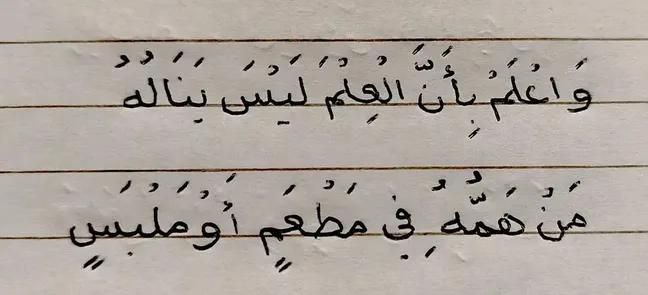 وَاعْلَمْ بِأَنَّ الْعِلْمَ لَيْسَ يَنَالُهُ
مَنْ هَمُّهُ فِي مَطْعَمٍ أَوْ مَلْبَسٍ